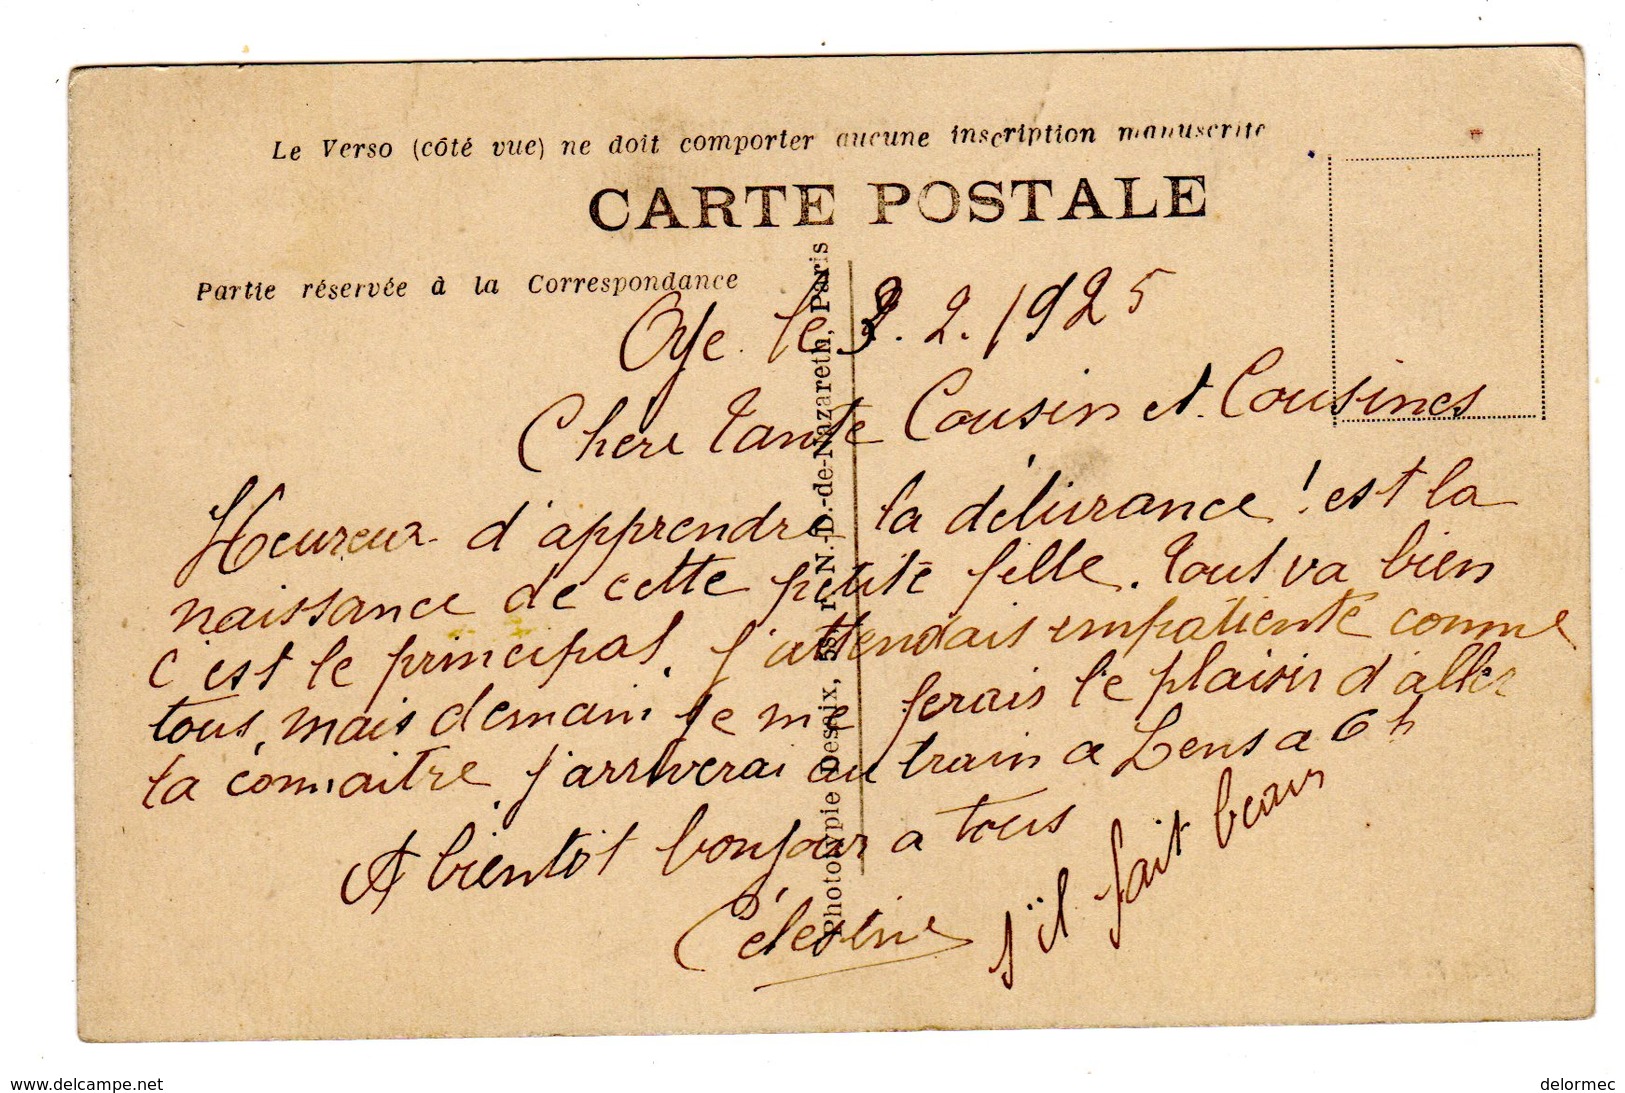 Le Verso (côté vue) ne doit comporter aucune inscription manuscrite
CARTE POSTALE
Partie réservée à la Correspondance
Oye le 3. 2. 1925
Chere Tante Cousin et Cousines
Heureux d'apprendre la délivrance ! est la
naissance de cette petite fille. Tout va bien
c'est le principal. J'attendais impatiente comme
tous, mais demain je me ferais le plaisir d'aller
la connaitre, j'arriverai au train a Lens a 6 h
s'il fait beau
A bientôt bonjour a tous
Célestine
Phototypie Desaix, 53, r. N.-D.-de-Nazareth, Paris
www.delcampe.net
delormec